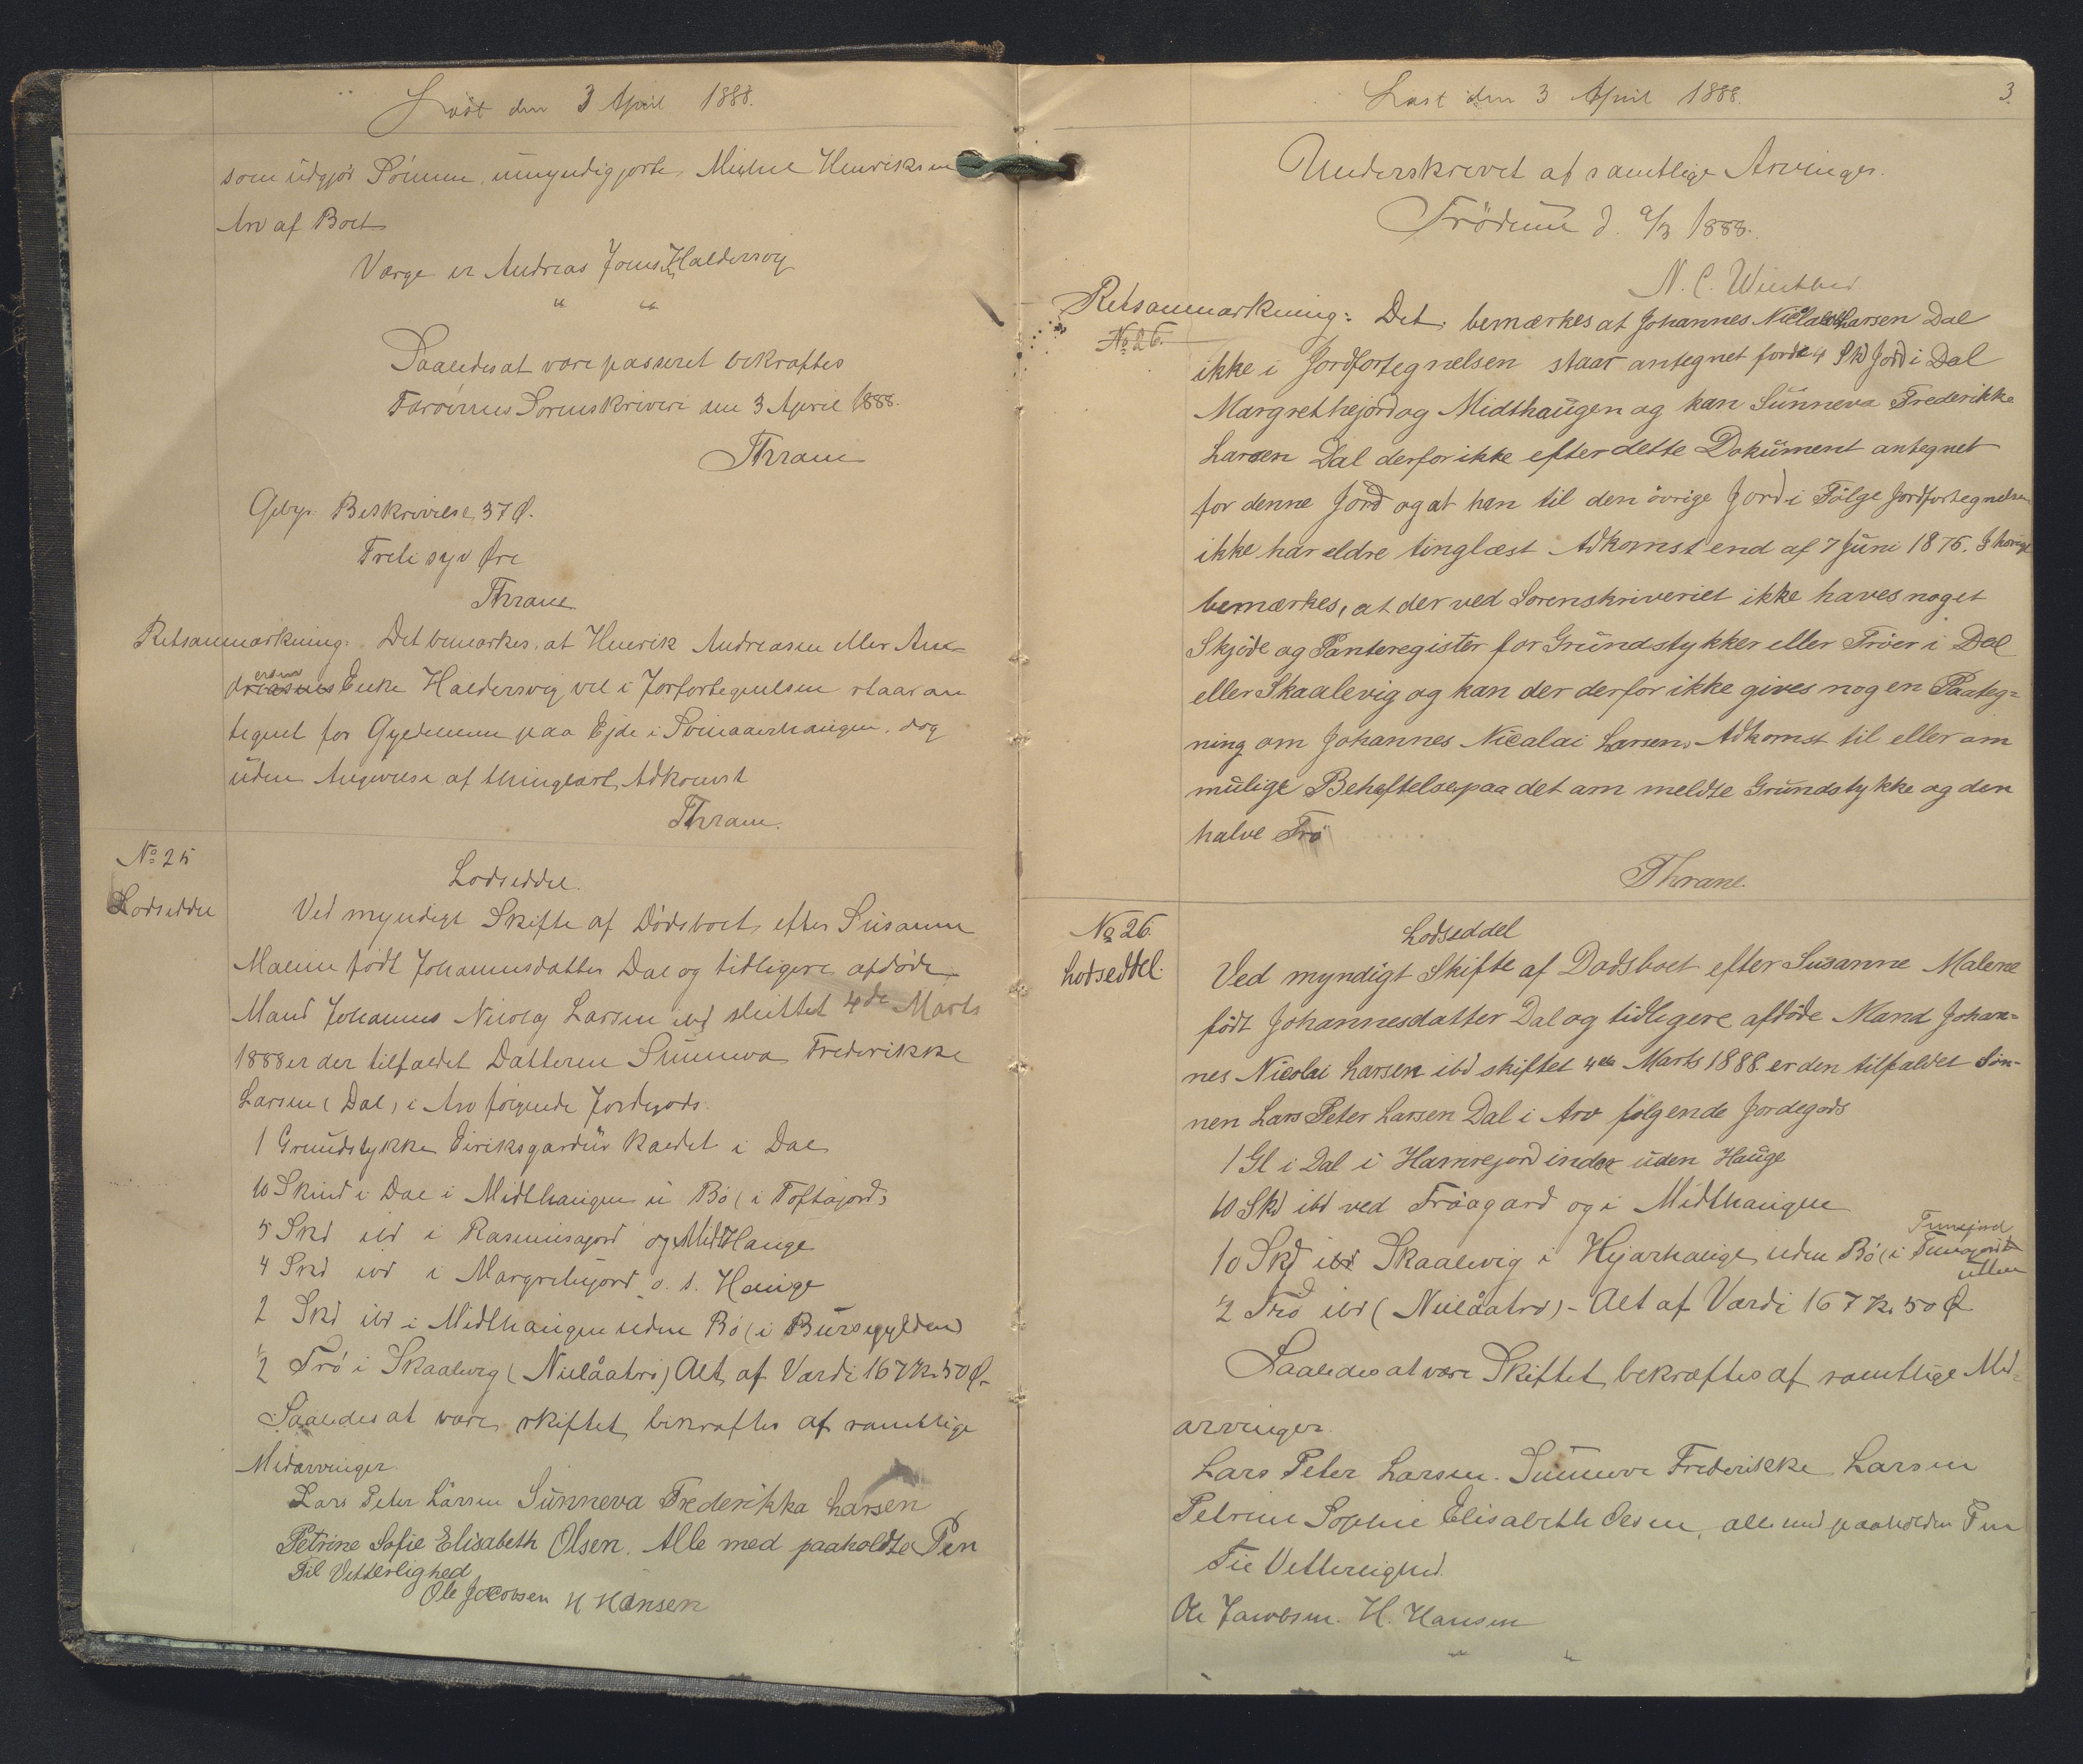 Læst den 3 April 1888.
som udgjør Sønnen, umyndiggjorte Michael Henriksen
Arv af Boet
Værge er Andreas Joensen Haldersvig
" "
Saaledes at være passeret bekræftes
Færøernes Sorenskriveri den 3 April 1888.
Thrane
Gebyr Beskrivelse 37 Ø.
Treti syv Øre
Thrane
Retsanmærkning: Det bemærkes, at Henrik Andreasen eller An-
dreasens Enke Haldersvig vel i Jorfortegnelsen staar an
tegnet for Gyldenen paa Ejde i Svinaairhaugen, dog
uden Angivelse af thinglæst Adkomst
Thrane.
No 25
Lodseddel
Lodseddel.
Ved myndigt Skifte af Dødsboet efter Susanne
Malene født Johannesdatter Dal og tidligere afdøde
Mand Johannes Nicolaj Larsen ibd sluttet 4de Marts
1888 er der tilfaldet Datteren Sunneva Frederikke
Larsen (Dal) i Arv følgende Jordegods:
1 Grundstykke Eiriksgardur kaldet i Dal
10 Skind i Dal i Midthaugen u Bø (i Toftajord)
5 Skd ibd i Rasmusajord og MidtHauge
4 Skd ibd i Margrethejord o. s. Hauge
2 Skd ibd i Midthaugen uden Bø (i Bursgylden)
½ Trø i Skaalevig (Nielåatrø) Alt af Værdi 167 Kr 50 Ø.
Saaledes at være skiftet bekræftes af samtlige
Medarvinger.
Lars Peter Larsen Sunneva Frederikka Larsen
Petrine Sofie Elisabeth Olsen. Alle med paaholdte Pen
Til Vitterlighed
Ole Jacobsen H Hansen
Læst den 3 April 1888.
3.
Underskrevet af samtlige Arvinger.
Trødum d. 9/3 1888.
N. C. Winther
Retsanmærkning: Det bemærkes at Johannes Nicolai Larsen Dal
No 26.
ikke i Jordfortegnelsen staar antegnet for de 4 Skd Jord i Dal
Margrethejord og Midthaugen og kan Sunneva Frederikke
Larsen Dal derfor ikke efter dette Dokument antegnet
for denne Jord og at han til den øvrige Jord i Følge Jordfortegnelsen
ikke har ældre tinglæst Adkomst end af 7 Juni 1876. I øvrigt
bemærkes, at der ved Sorenskriveriet ikke haves noget
Skjøde og Panteregister for Grundstykker eller Trøer i Dal
eller Skaalevig og kan der derfor ikke gives nogen Paateg=
ning om Johannes Nicalai Larsens Adkomst til eller om
mulige Behæftelser paa det om meldte Grundstykke og den
halve Trø
Thrane.
No 26.
Lodseddel.
Lodseddel
Ved myndigt Skifte af Dødsboet efter Susanne Malene
født Johannesdatter Dal og tidligere afdøde Mand Johan=
nes Nicolai Larsen ibd skiftet 4de Marts 1888 er den tilfaldet Søn-
nen Lars Peter Larsen Dal i Arv følgende Jordegods
1 Gl i Dal i Hamrejord inder uden Hauge
10 Skd ibd ved Trøagard og i Midthaugen
Tunejord
10 Skd ibd Skaalevig i Hejarhauge uden Bø (i Tunajord
½ Trø ibd (Nielåatrø) - Alt af Værdi 167 Kr 50 Ø
Saaledes at være Skiftet bekræftes af samtlige Med=
arvinger.
Lars Peter Larsen. Sunneva Frederikke Larsen
Petrine Sophie Elisabeth Olsen, alle med paaholden Pen
Til Vitterlighed.
Ole Jacobsen. H. Hansen
" "